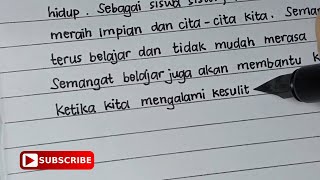 hidup. Sebagai siswa
meraih impian dan cita-cita kita. Sema
terus belajar dan tidak mudah merasa
Semangat belajar juga akan membantu k
Ketika kita mengalami kesulit
SUBSCRIBE